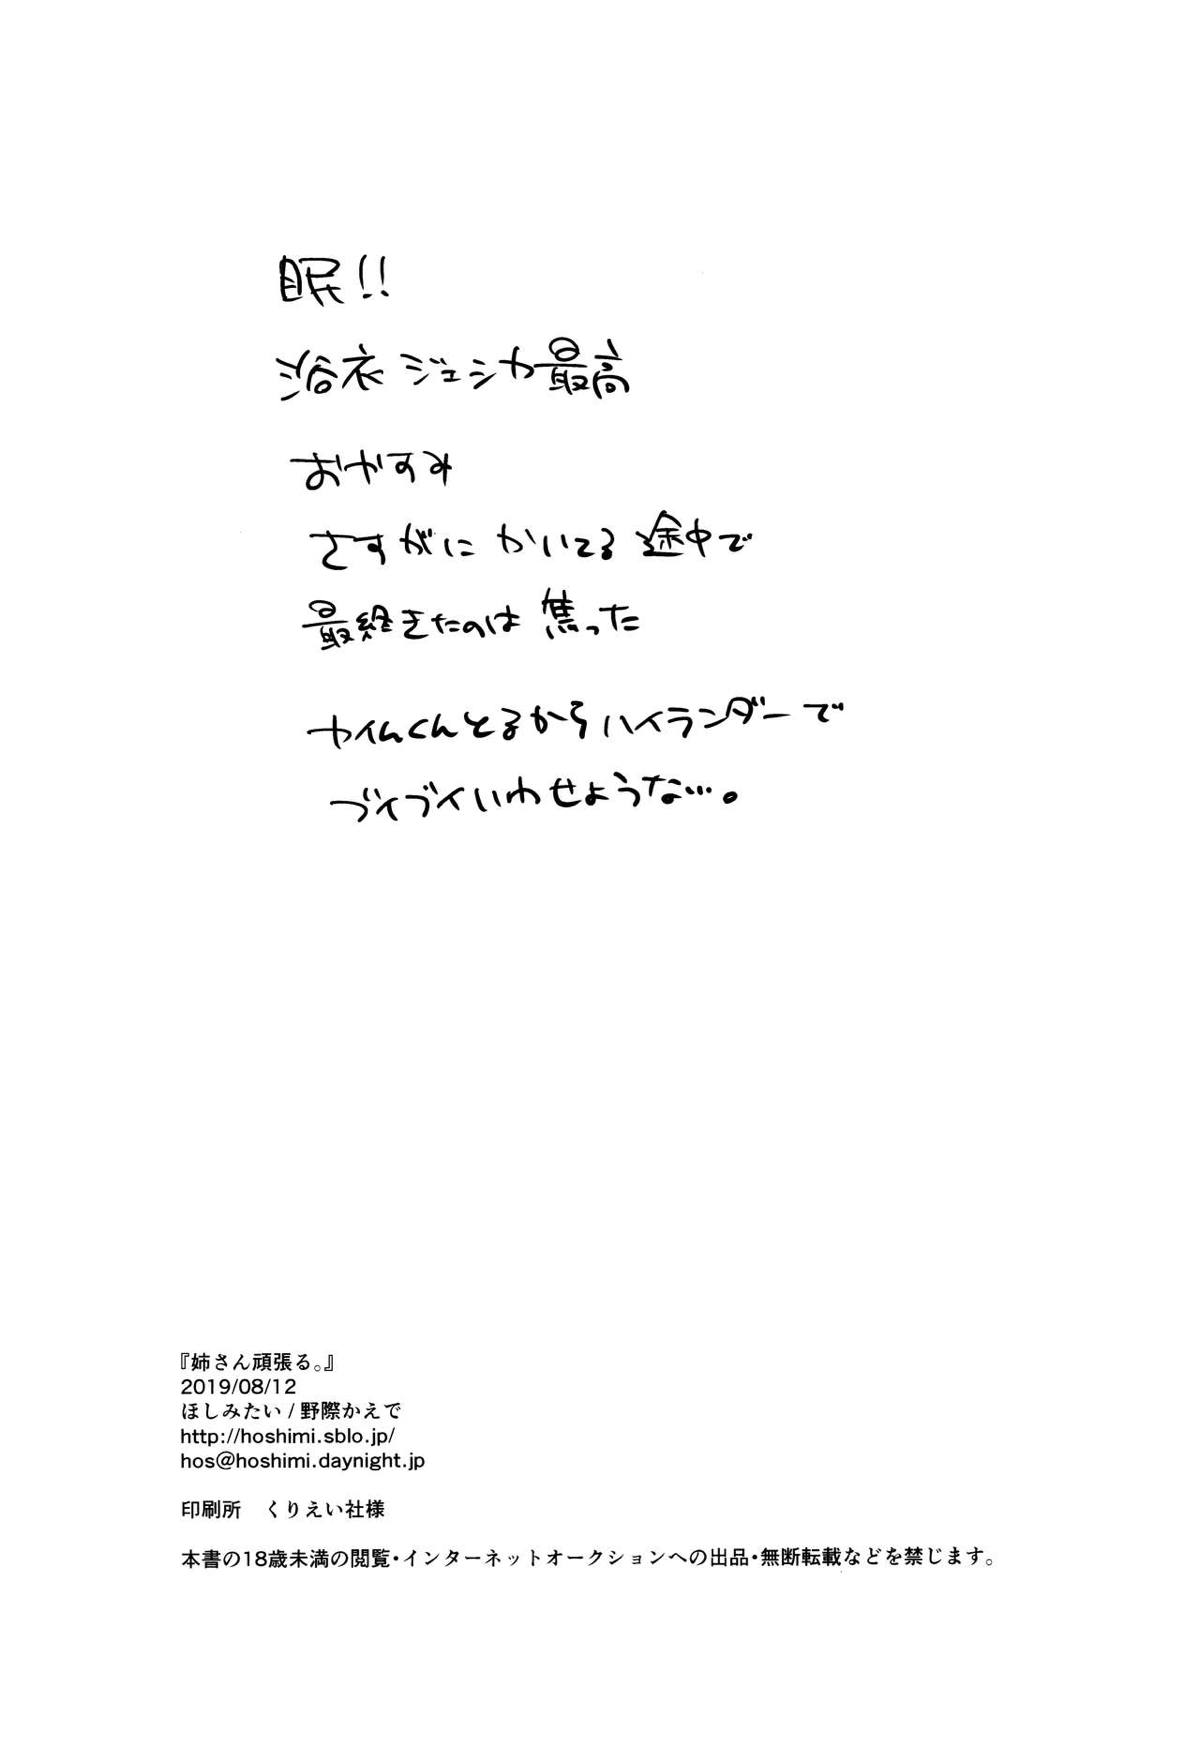 眠!!
浴衣ジェシカ最高
おやすみ
さすがにかいてる途中で
最終きたのは焦った
カイムくんとるからハイランダーで
ブイブイいわせような…。
『姉さん頑張る。』
2019/08/12
ほしみたい / 野際かえで
http://hoshimi.sblo.jp/
hos@hoshimi.daynight.jp
印刷所　くりえい社様
本書の18歳未満の閲覧・インターネットオークションへの出品・無断転載などを禁じます。